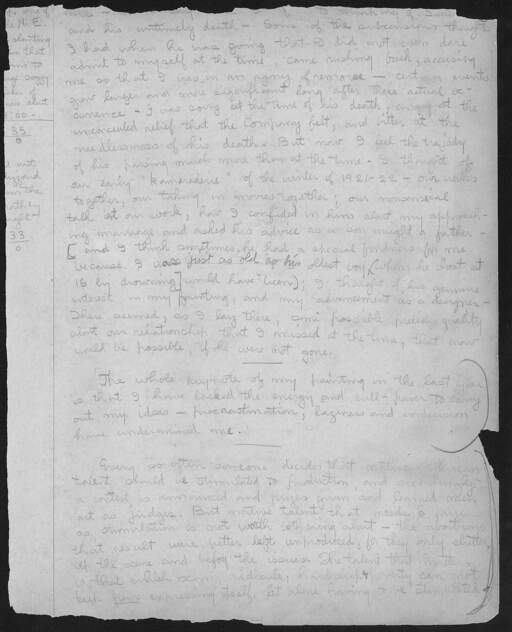 and his untimely death - Some of the subconscious thoughts
I had when he was going that I did not even dare
admit to myself at the time, came rushing back, accusing
me so that I was in an agony of remorse - certain events
grow larger and more significant long after their actual oc-
currence - I was sorry at the time of his death, angry at the
unconcealed relief that the Company felt, and bitter at the
needlessness of his death. But now I feel the tragedy
of his passing much more than at the time - I thought of
our early "kamaraderie" of the winter of 1921-22 - our walks
together, our taking in movies together, our nonsensical
talk at our work, how I confided in him about my approach-
ing marriage and asked his advice as a son might a father -
[and I think sometimes he had a special fondness for me
because I was just as old as his oldest boy (whom he lost at
18 by drowning) would have been]; I thought of his genuine
interest in my painting, and my advancement as a designer -
There seemed, as I lay there, some possible precious quality
about our relationship that I missed at the time, but now
would be possible, if he were not gone.
The whole keynote of my painting in the last year
is that I have lacked the energy and will-power to carry
out my ideas - procrastination, laziness and indecision
have undermined me.
Every so often someone decides that native American
talent should be stimulated to production and accordingly
a contest is announced and prizes given and learned men
act as judges. But native talent that needs a prize
as stimulation is not worth bothering about - the abortions
that result were better left unproduced, for they only clutter
up the scene and befog the issue. The talent that matters
is that which scorn, ridicule, hardship, poverty can not
keep from expressing itself, let alone having to be stimulated
35
0
33
0